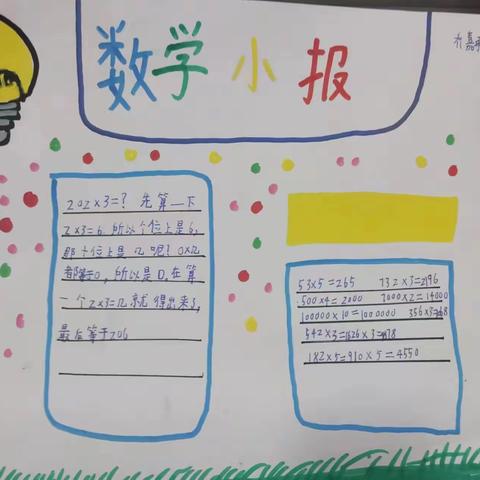 数学小报
嘉
202×3=? 先算一下
2×3=6. 所以个位上是6,
那十位上是几呢? 0×几
都等于0, 所以是0, 在算
一个2×3=几就得出来了,
最后等于206
53×5=265 732×3=2196
500×4=2000 7000×2=14000
100000×10=1000000 356×3=
542×3=1626×3=
182×5=910×5=4550